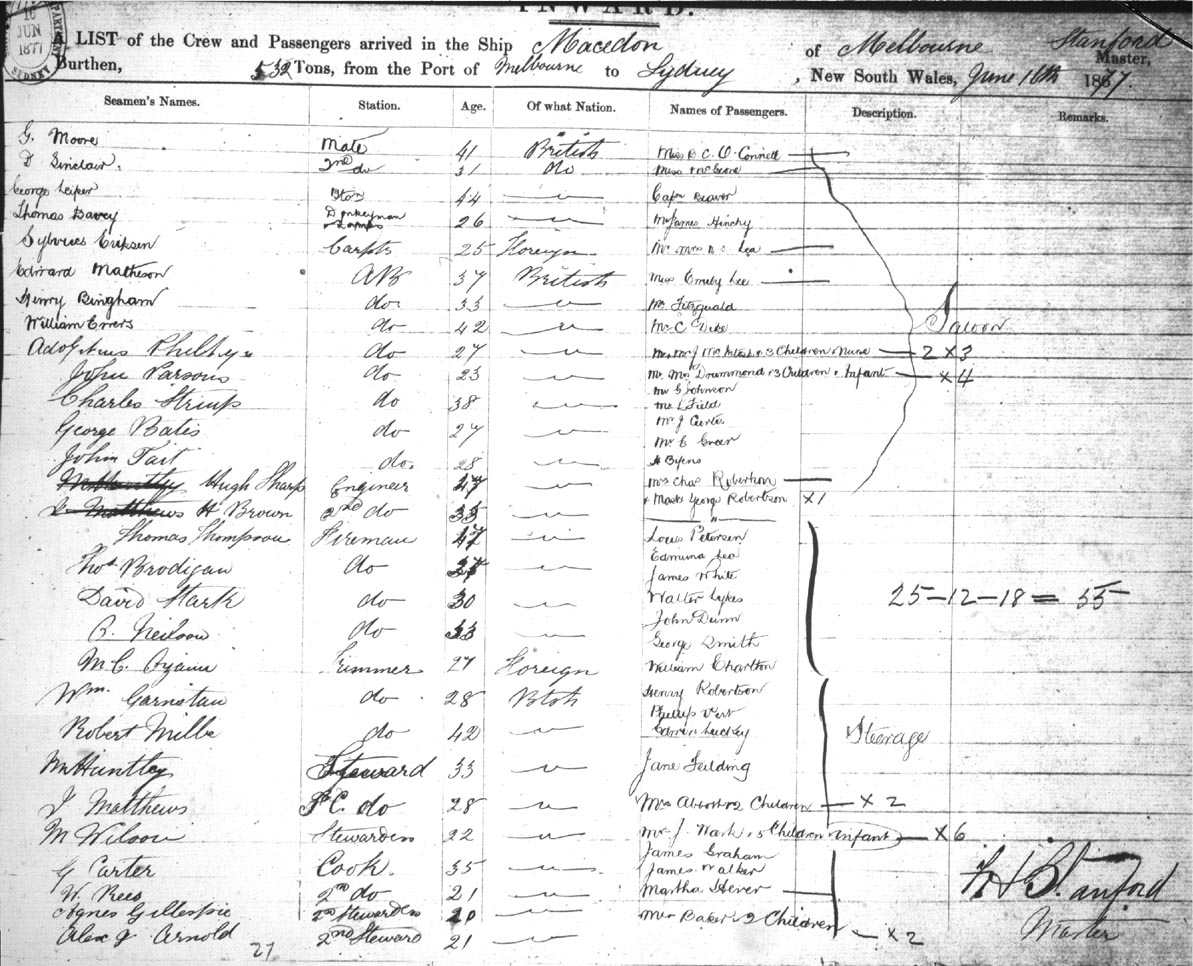 INWARD.
16
JUN
1877
SYDNEY
A LIST of the Crew and Passengers arrived in the Ship Macedon of Melbourne Stanford Master,
Burthen, 532 Tons, from the Port of Melbourne to Sydney, New South Wales, June 16th 1877.
Seamen's Names. Station. Age. Of what Nation. Names of Passengers. Description. Remarks.
G. Moore Mate 41 British Miss B C. O'Connell
Sinclair. 2nd do 31 do Miss
George Leiper 44 Capn Beaver
Thomas Davey Donkeyman & Lamps 26 Mr James Hinchy
Sylvius Eriksen Carptr 25 Foreign Mr Mrs Lea
Edward Matheson AB 37 British Miss Emily Lee
Henry Bingham do 33 Mr Fitzgerald
William Errers do 42 Mr C Dike Saloon
Adolphus do 27 3 Children & Nurse 2 x 3
John Parsons do 23 Mr Mrs Drummond & 3 Children & Infant x 4
Mr G Johnson
Charles Strimp do 38 Mr L Field
Mr J Curtis
George Batis do 27 Mr C Greer
John Tait do. 28 H Byens
Hugh Sharp Engineer 47 Mrs Chas Robertson
Matthews H Brown 2nd do 35 & Mastr George Robertson x 1
Thomas Thompson Fireman 47 Louis Petersen
Edmund Lea
Thos Brodigan do 27 James White
David Stark do 30 Walter Sykes 25-12-18 = 55
John Dunn
C. Neilson do 33 George Smith
M C. Trimmer 27 Foreign William Charlton
Wm. Garnstau do 28 Btsh Henry Robertson
Phillip Vert
Robert Mills do 42 Luckey Steerage
W Huntley Steward 33 Jane Fielding
J Matthews F.C. do 28 Mrs Abbot & 2 Children x 2
M Wilson Stewardess 22 Mr J. Wark & 5 Children Infant x 6
James Graham
G Carter Cook. 35 James Walker
W. Rees 2nd do 21 Martha Hever
Agnes Gillespie 2nd Stewardess 20 Mrs Baker & 2 Children x 2
Alex J Arnold 2nd Steward 21
27
Stanford
Master